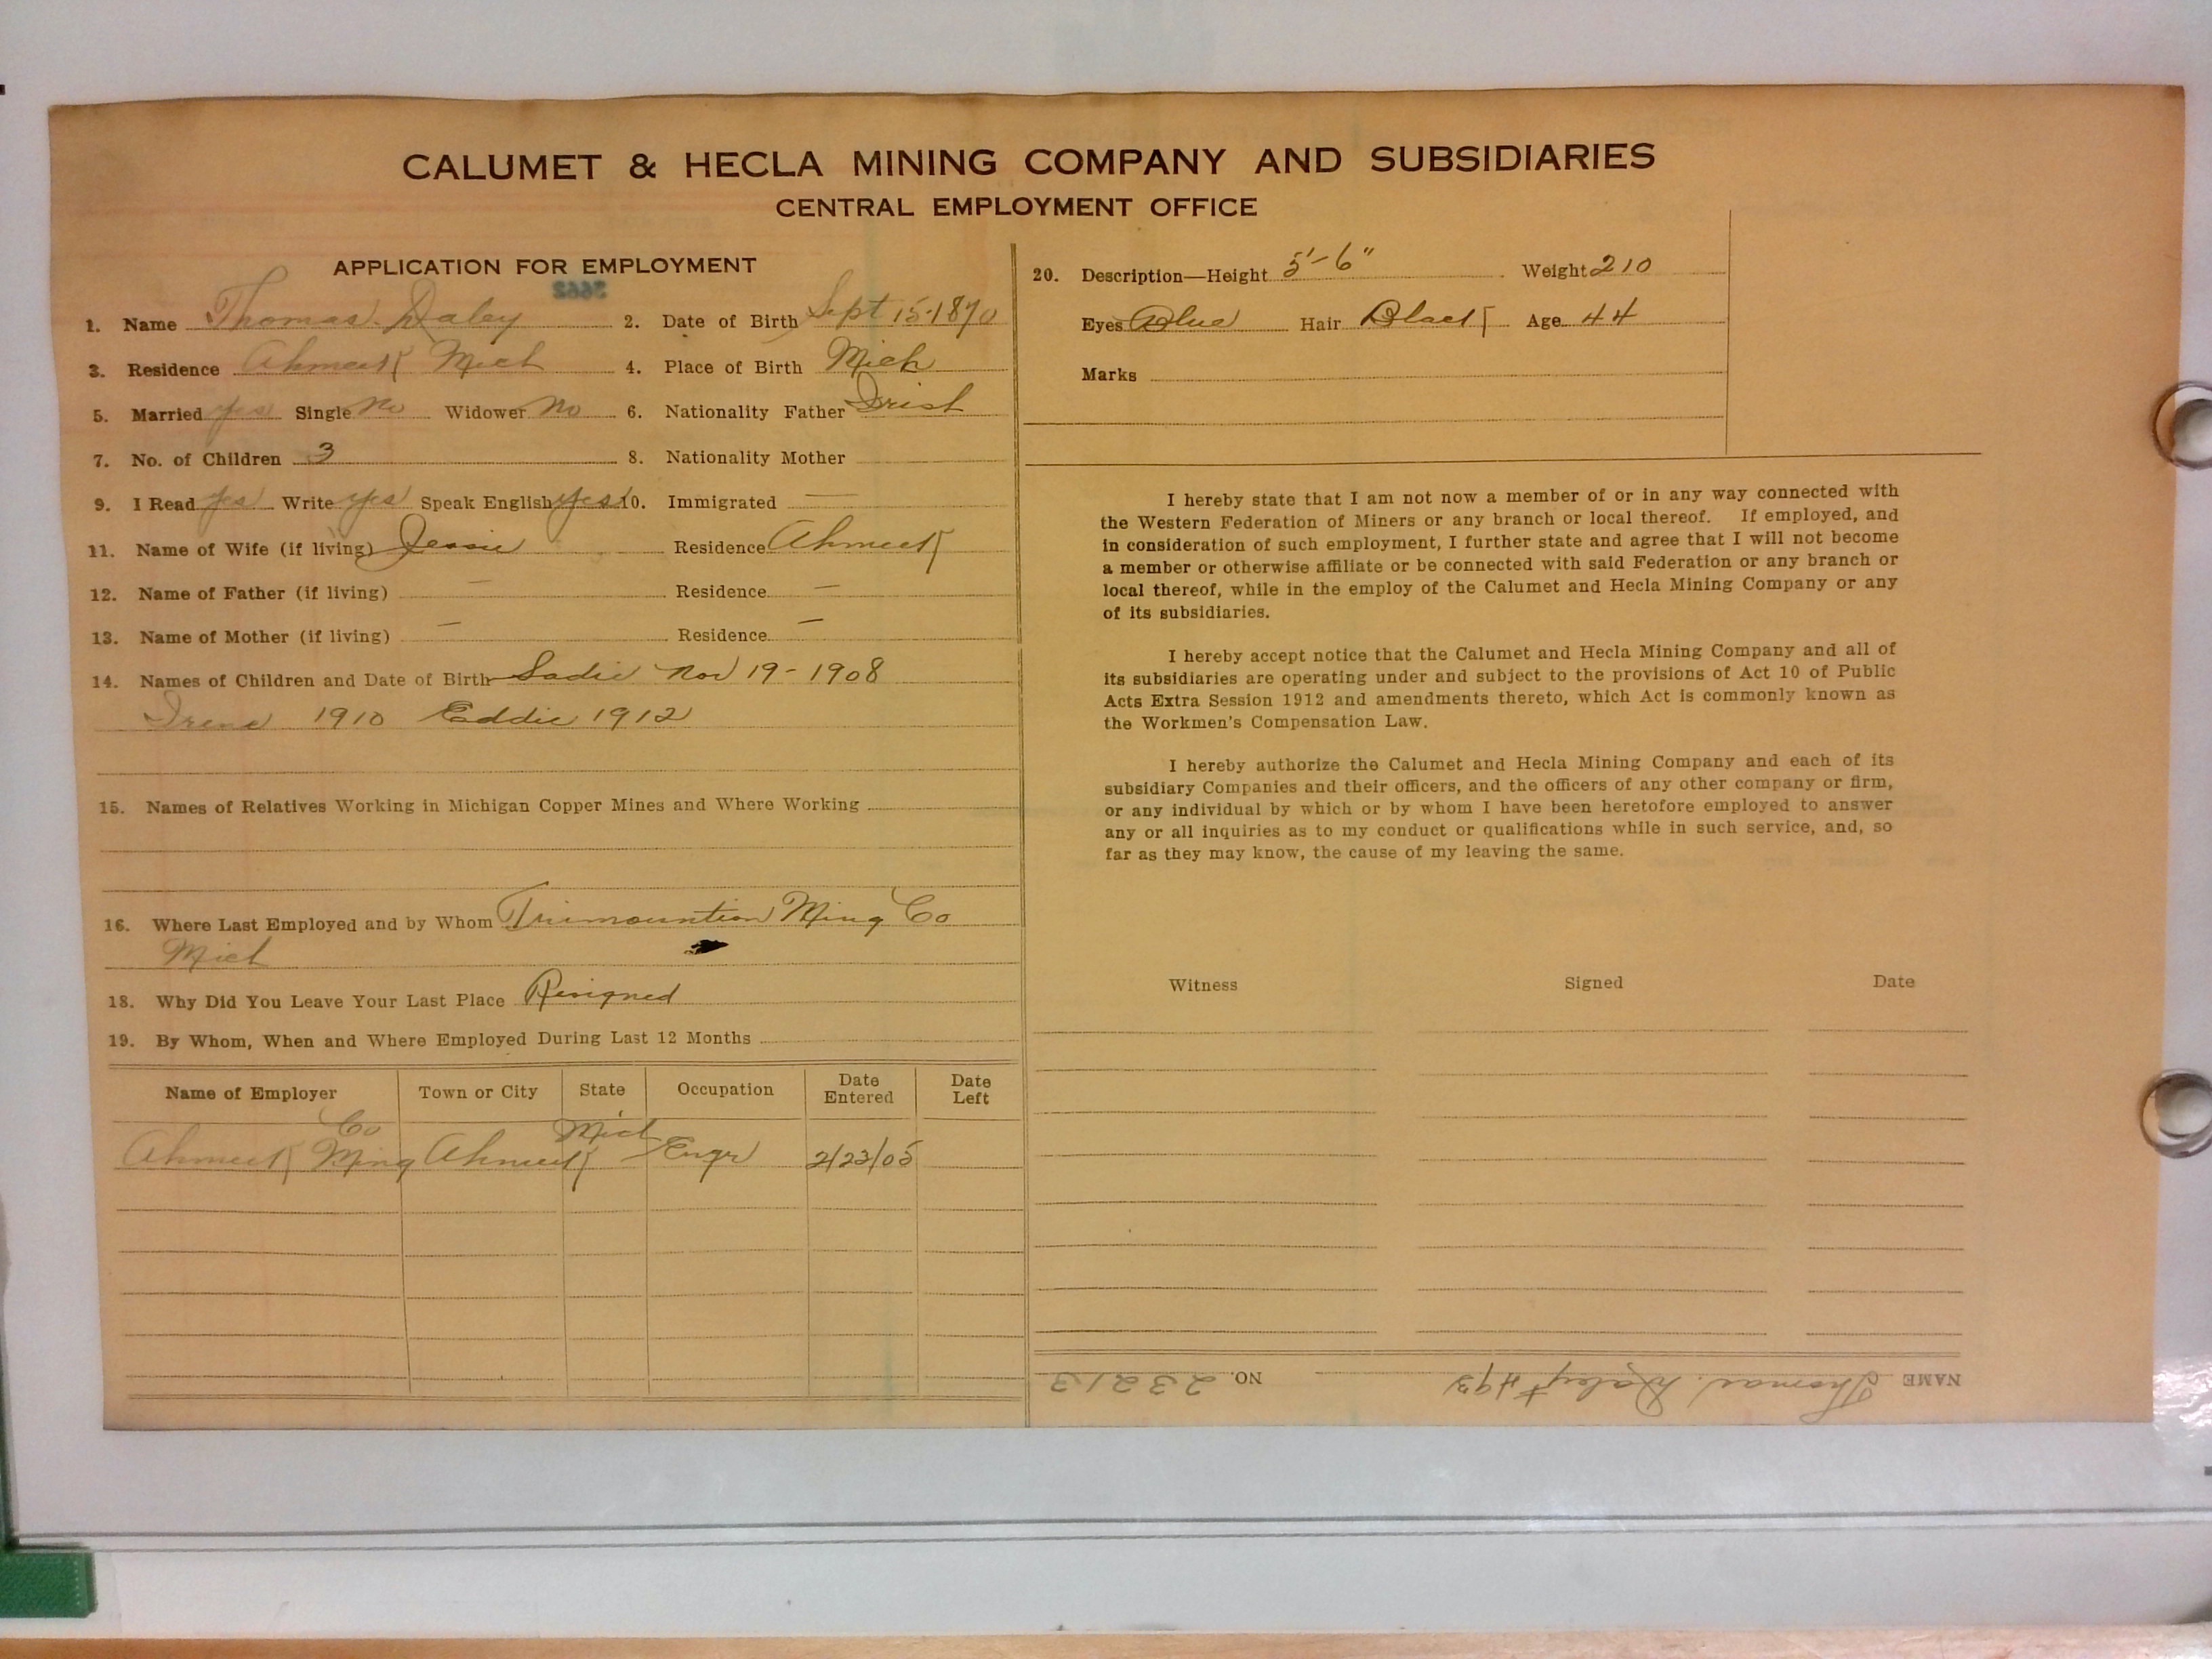 CALUMET & HECLA MINING COMPANY AND SUBSIDIARIES
CENTRAL EMPLOYMENT OFFICE
APPLICATION FOR EMPLOYMENT
3662
1. Name Thomas. Daley 2. Date of Birth Sept 15-1870
3. Residence Ahmeek Mich 4. Place of Birth Mich
5. Married yes Single no Widower no 6. Nationality Father Irish
7. No. of Children 3 8. Nationality Mother
9. I Read yes Write yes Speak English yes 10. Immigrated —
11. Name of Wife (if living) Jessie Residence Ahmeek
12. Name of Father (if living) — Residence —
13. Name of Mother (if living) — Residence —
14. Names of Children and Date of Birth Sadie Nov 19-1908
Irene 1910 Eddie 1912
15. Names of Relatives Working in Michigan Copper Mines and Where Working
16. Where Last Employed and by Whom Trimountion Ming Co
Mich
18. Why Did You Leave Your Last Place Resigned
19. By Whom, When and Where Employed During Last 12 Months
Name of Employer Town or City State Occupation Date Entered Date Left
Ahmeek Ming Co Ahmeek Mich Engr 2/23/05
20. Description—Height 5'-6" Weight 210
Eyes Blue Hair Black Age 44
Marks
I hereby state that I am not now a member of or in any way connected with
the Western Federation of Miners or any branch or local thereof. If employed, and
in consideration of such employment, I further state and agree that I will not become
a member or otherwise affiliate or be connected with said Federation or any branch or
local thereof, while in the employ of the Calumet and Hecla Mining Company or any
of its subsidiaries.
I hereby accept notice that the Calumet and Hecla Mining Company and all of
its subsidiaries are operating under and subject to the provisions of Act 10 of Public
Acts Extra Session 1912 and amendments thereto, which Act is commonly known as
the Workmen's Compensation Law.
I hereby authorize the Calumet and Hecla Mining Company and each of its
subsidiary Companies and their officers, and the officers of any other company or firm,
or any individual by which or by whom I have been heretofore employed to answer
any or all inquiries as to my conduct or qualifications while in such service, and, so
far as they may know, the cause of my leaving the same.
Witness Signed Date
NAME Thomas. Daley #493 NO. 23213